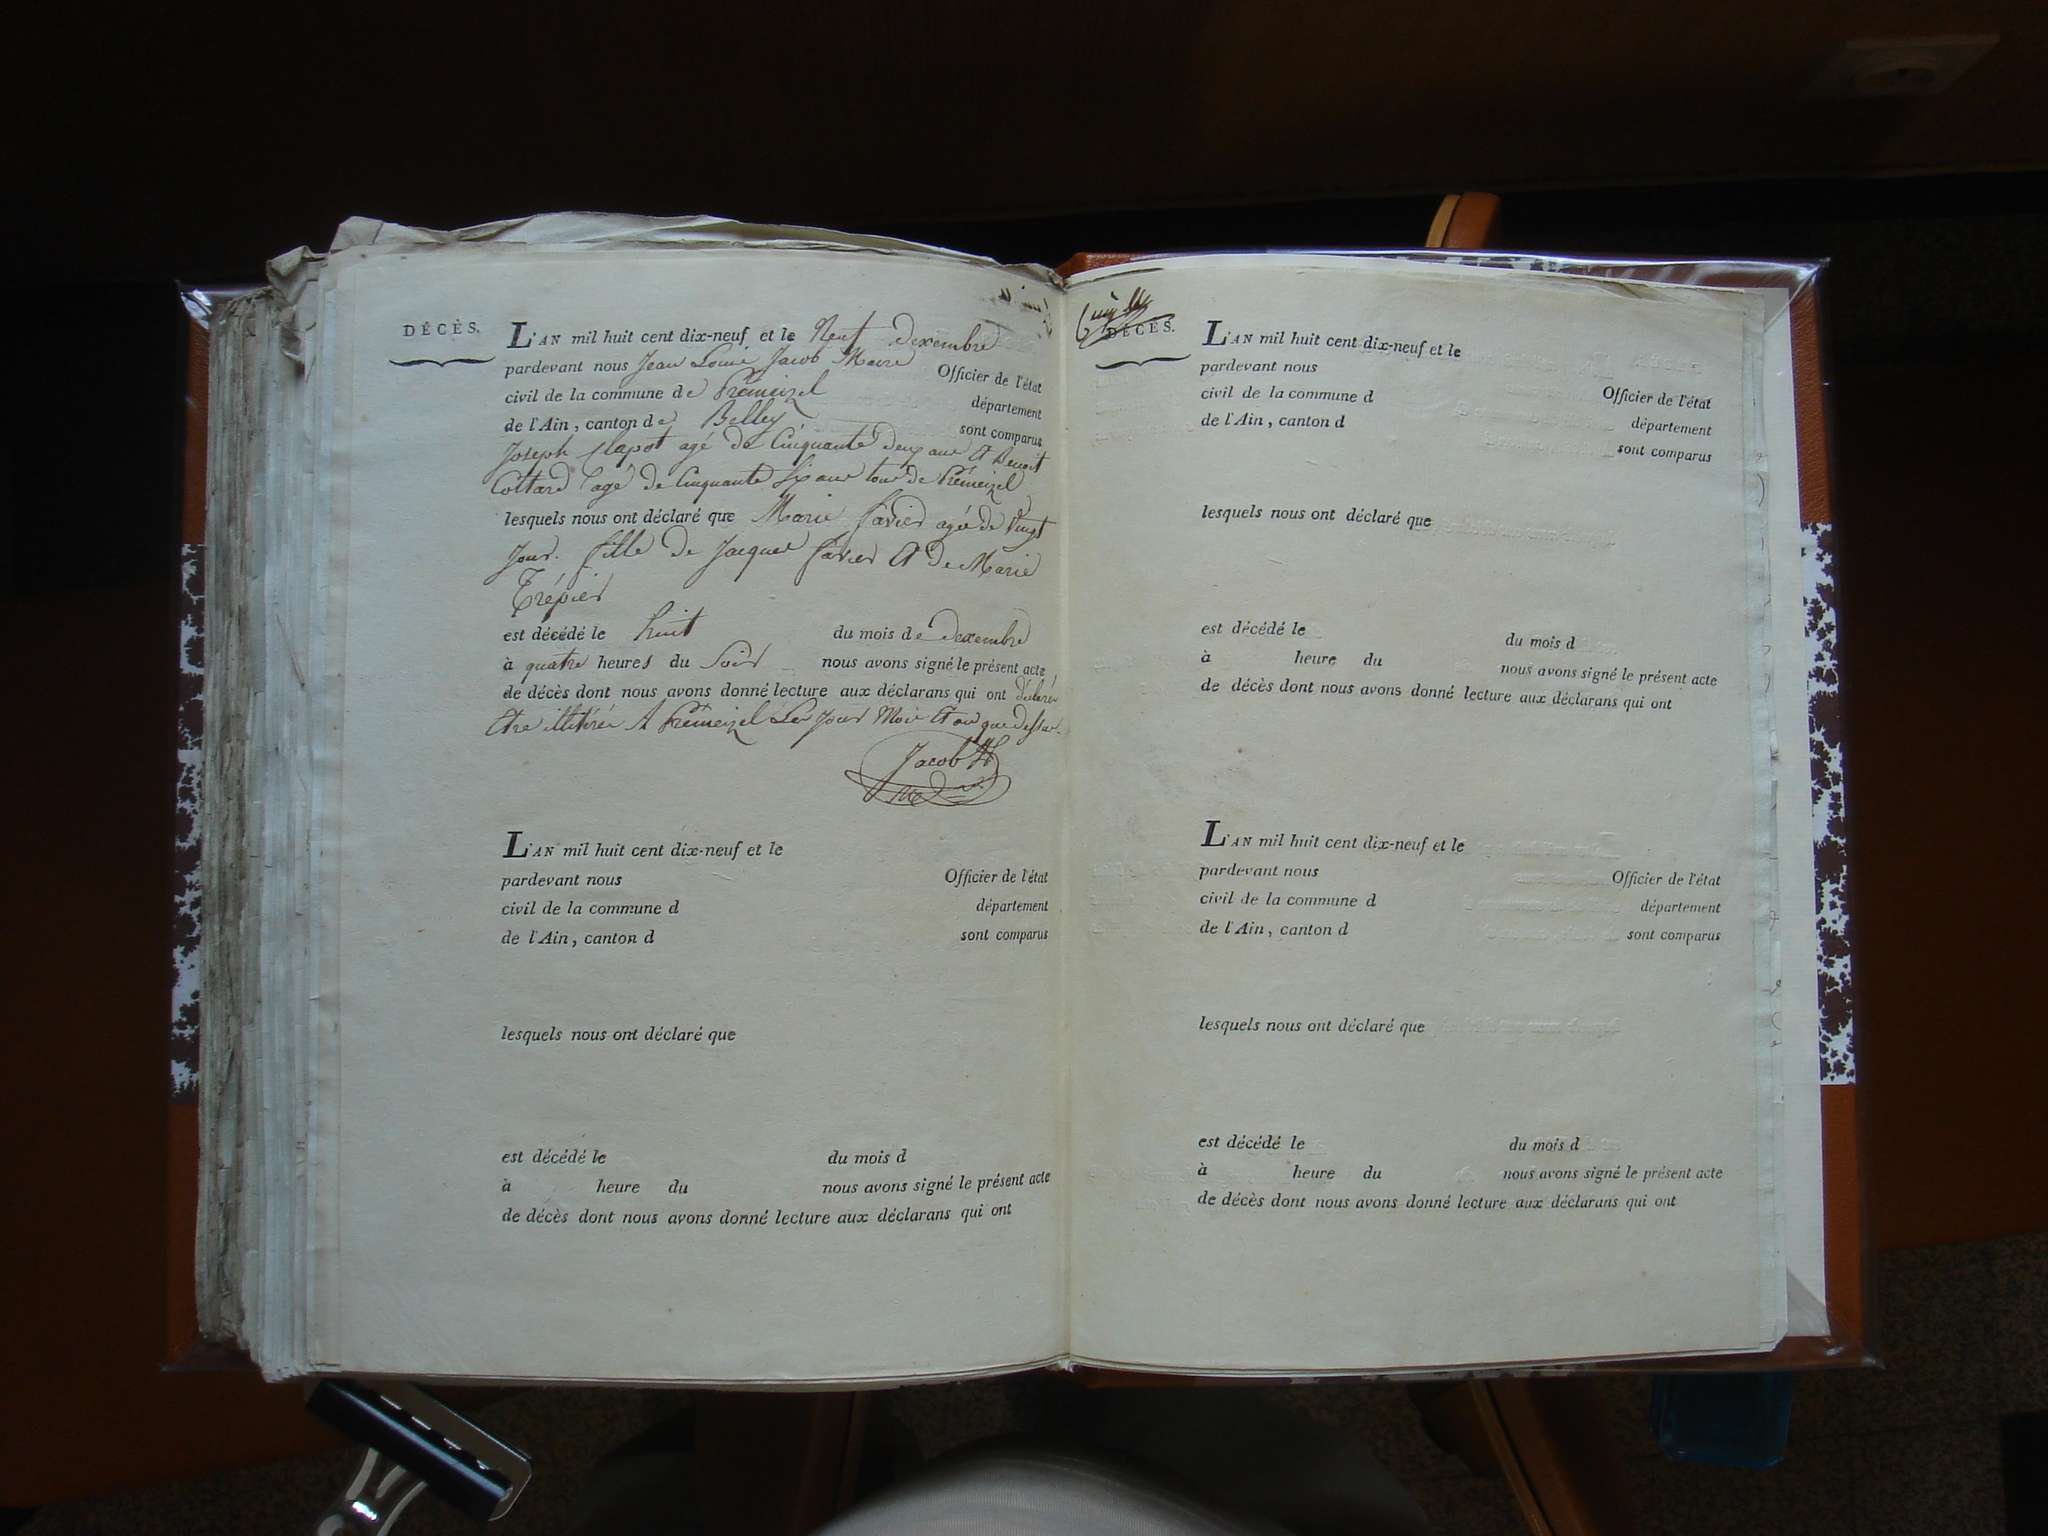 DÉCÈS.
L'AN mil huit cent dix-neuf et le Neuf dexembre
pardevant nous Jean Louis Jacob Maire Officier de l'état
civil de la commune de Prémeizel département
de l'Ain, canton de Belley sont comparus
Joseph Clapot agé de Cinquante deux ans Et Benoit
Cottard agé de Cinquante Six ans tous de Prémeizel
lesquels nous ont déclaré que Marie favier agée de Vingt
Jour. fille de Jacques favier Et de Marie
Trépier
est décédé le huit du mois de dexembre
à quatre heures du Soir nous avons signé le présent acte
de décès dont nous avons donné lecture aux déclarans qui ont déclaré
Etre illitéré A Prémeizel Les Jour Mois Et an que dessus.
Jacob
L'AN mil huit cent dix-neuf et le
pardevant nous Officier de l'état
civil de la commune d département
de l'Ain, canton d sont comparus
lesquels nous ont déclaré que
est décédé le du mois d
à heure du nous avons signé le présent acte
de décès dont nous avons donné lecture aux déclarans qui ont
DÉCÈS.
L'AN mil huit cent dix-neuf et le
pardevant nous Officier de l'état
civil de la commune d département
de l'Ain, canton d sont comparus
lesquels nous ont déclaré que
est décédé le du mois d
à heure du nous avons signé le présent acte
de décès dont nous avons donné lecture aux déclarans qui ont
L'AN mil huit cent dix-neuf et le
pardevant nous Officier de l'état
civil de la commune d département
de l'Ain, canton d sont comparus
lesquels nous ont déclaré que
est décédé le du mois d
à heure du nous avons signé le présent acte
de décès dont nous avons donné lecture aux déclarans qui ont